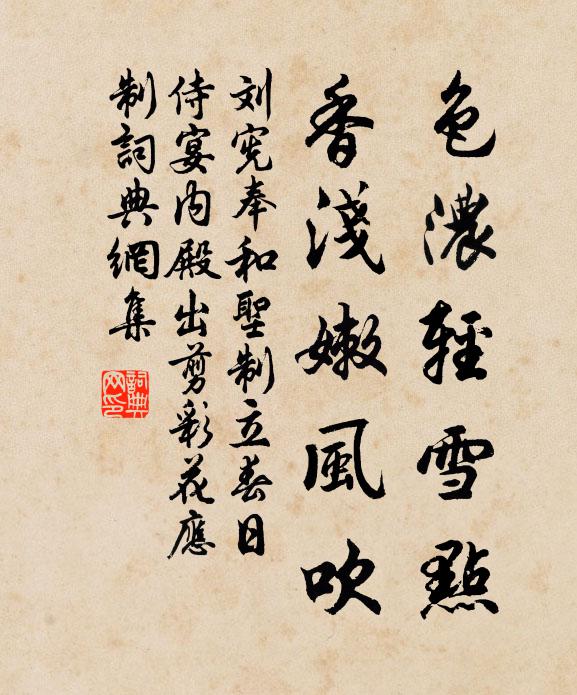 色濃輕雪點
香淺嫩風吹
刘宪奉和聖制立春日
侍宴内殿出剪彩花應
制詞典網集
詞典網印